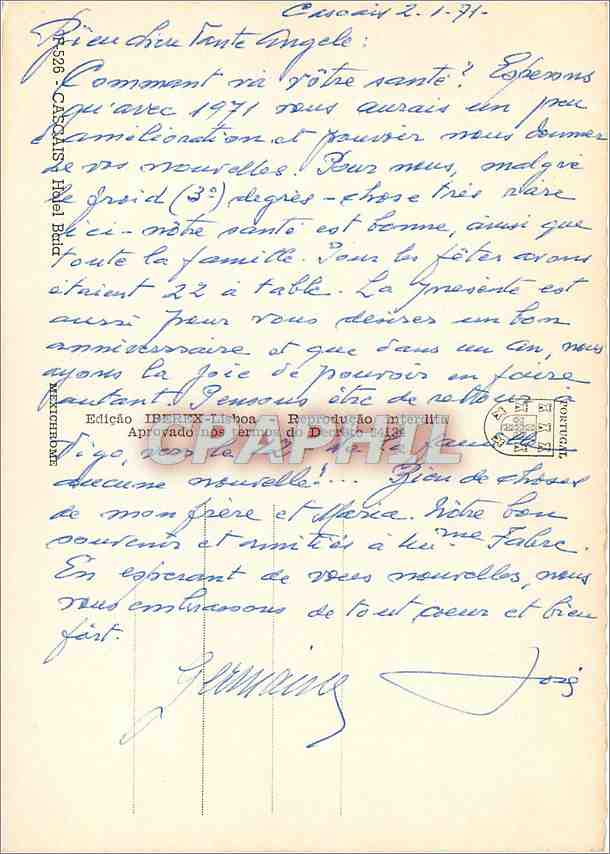 Cascais 2.1.71-
Bien chère Tante Angele:
Comment va vôtre santé? Esperons
qu'avec 1971 vous aurais un peu
d'amélioration et pouvoir nous donner
de vos nouvelles. Pour nous, malgré
le froid (3º) degrès - chose très rare
ici - nôtre santé est bonne, ainsi que
toute la famille. Pour les fêtes avons
étaient 22 à table. La présente est
aussi pour vous désirer un bon
anniversaire et que dans un an, nous
ayons la joie de pouvoir en faire
autant. Pensons être de retour à
Vigo, vers le la famille
aucune nouvelle!... Bien de choses
de mon frère et Maria. Nôtre bon
souvenir et amitiés à me Fabre.
En esperant de vous nouvelles, nous
vous embrassons de tout coeur et bien
fort.
Germaine
P-526 - CASCAIS - Hotel Baía
MEXICHROME
Edição IBEREX-Lisboa Reprodução interdita
Aprovado nos termos do Decreto 54124
PORTUGAL
CPAPHIL